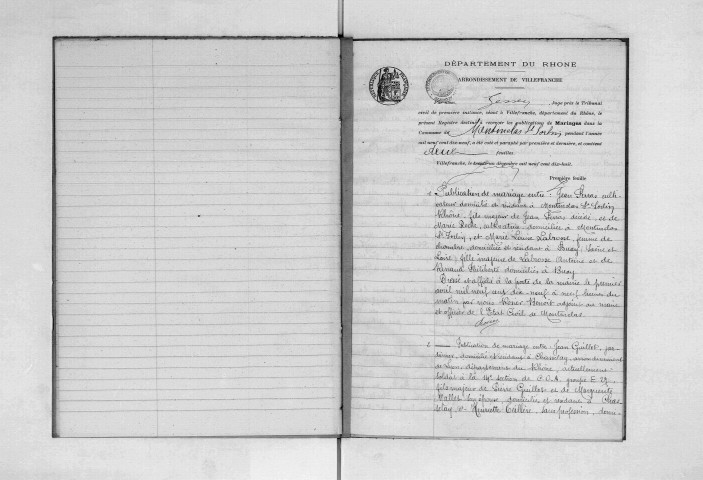 DÉPARTEMENT DU RHONE
ARRONDISSEMENT DE VILLEFRANCHE
, Juge près le Tribunal
civil de première instance, séant à Villefranche, département du Rhône, le
présent Registre destiné à recevoir les publications de Mariages dans la
Commune de Montmelas St Sorlin, pendant l'année
mil neuf cent dix-neuf, a été coté et paraphé par première et dernière, et contient
feuilles
Villefranche, le décembre mil neuf cent dix-huit.
Première feuille
1 Publication de mariage entre: Jean culti-
vateur domicilié et résidant à Montmelas St Sorlin
Rhône, fils majeur de Jean décédé, et de
Marie cultivatrice, domiciliée à Montmelas
St Sorlin, et Marie Louise Labrosse, femme de
chambre, domiciliée et résidant à Bussy, Saône et
Loire, fille majeure de Labrosse Antoine et de
Philiberte domiciliés à Bussy
Dressé et affiché à la porte de la mairie le premier
avril mil neuf cent dix neuf à neuf heures du
matin par nous Benoit adjoint au maire
et officier de l'Etat Civil de Montmelas
2 Publication de mariage entre: Jean Guillot,
domicilié et résidant à Chasselay, arrondissement
de Lyon, département du Rhône, actuellement
soldat à la 14e section de C.O.A. groupe
fils majeur de Pierre Guillot et de Marguerite
Mallet son épouse, domiciliés et résidant à Chas-
selay, et Henriette sans profession, domi-